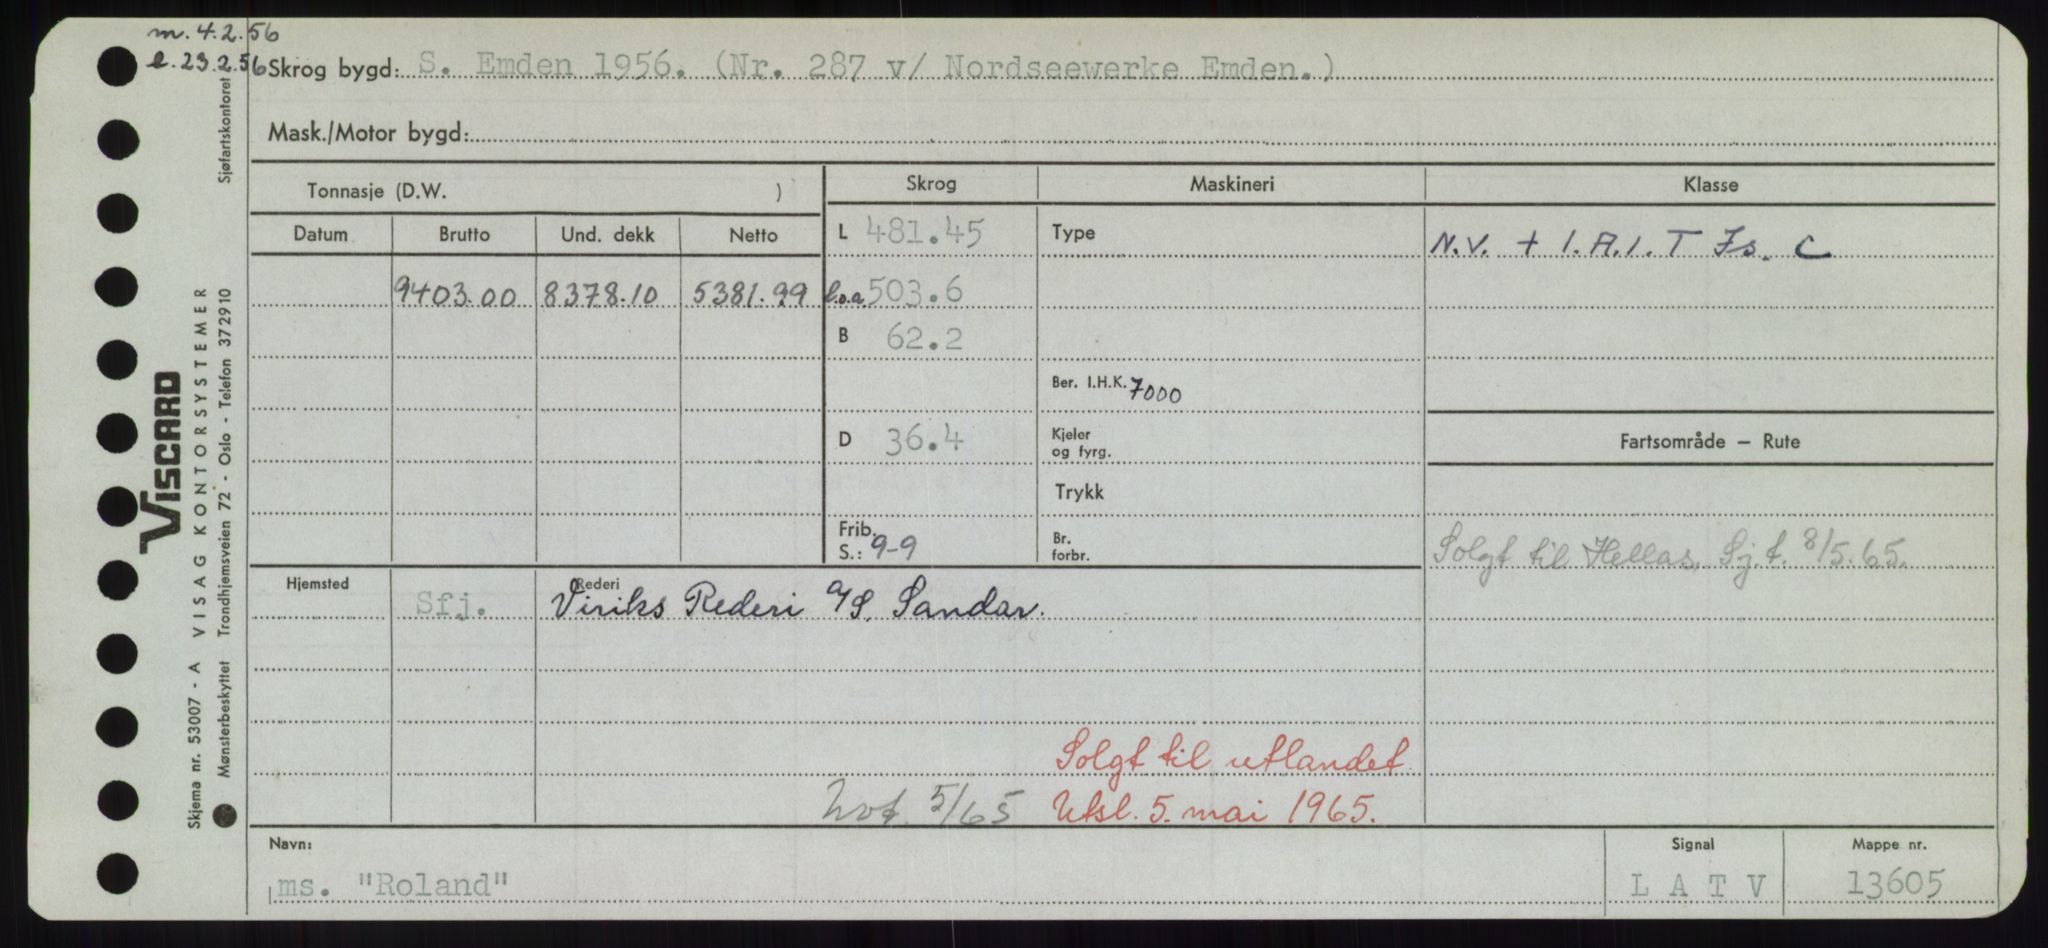 m. 4.2.56
l. 23.2.56
Skrog bygd: S. Emden 1956. (Nr. 287 v/ Nordseewerke Emden.)
Mask./Motor bygd:
Tonnasje (D.W. )
Skrog
Maskineri
Klasse
Datum Brutto Und. dekk Netto
L 481.45
Type
N.V. + 1.A.1. T Is. C
9403.00 8378.10 5381.99
l.o.a. 503.6
B 62.2
Ber. I.H.K. 7000
D 36.4
Kjeler
og fyrg.
Fartsområde — Rute
Trykk
Frib.
S.: 9-9
Br.
forbr.
Solgt til Hellas, Sj.t. 8/5.65.
Hjemsted Sfj.
Rederi
Viriks Rederi A/S, Sandar.
Solgt til utlandet
Not. 5/65 Utsl. 5. mai 1965.
Navn:
ms. "Roland"
Signal
L A T V
Mappe nr.
13605
Skjema nr. 53007 - A VISAG KONTORSYSTEMER
VISCARD
Mønsterbeskyttet Trondhjemsveien 72 - Oslo - Telefon 372910 Sjøfartskontoret